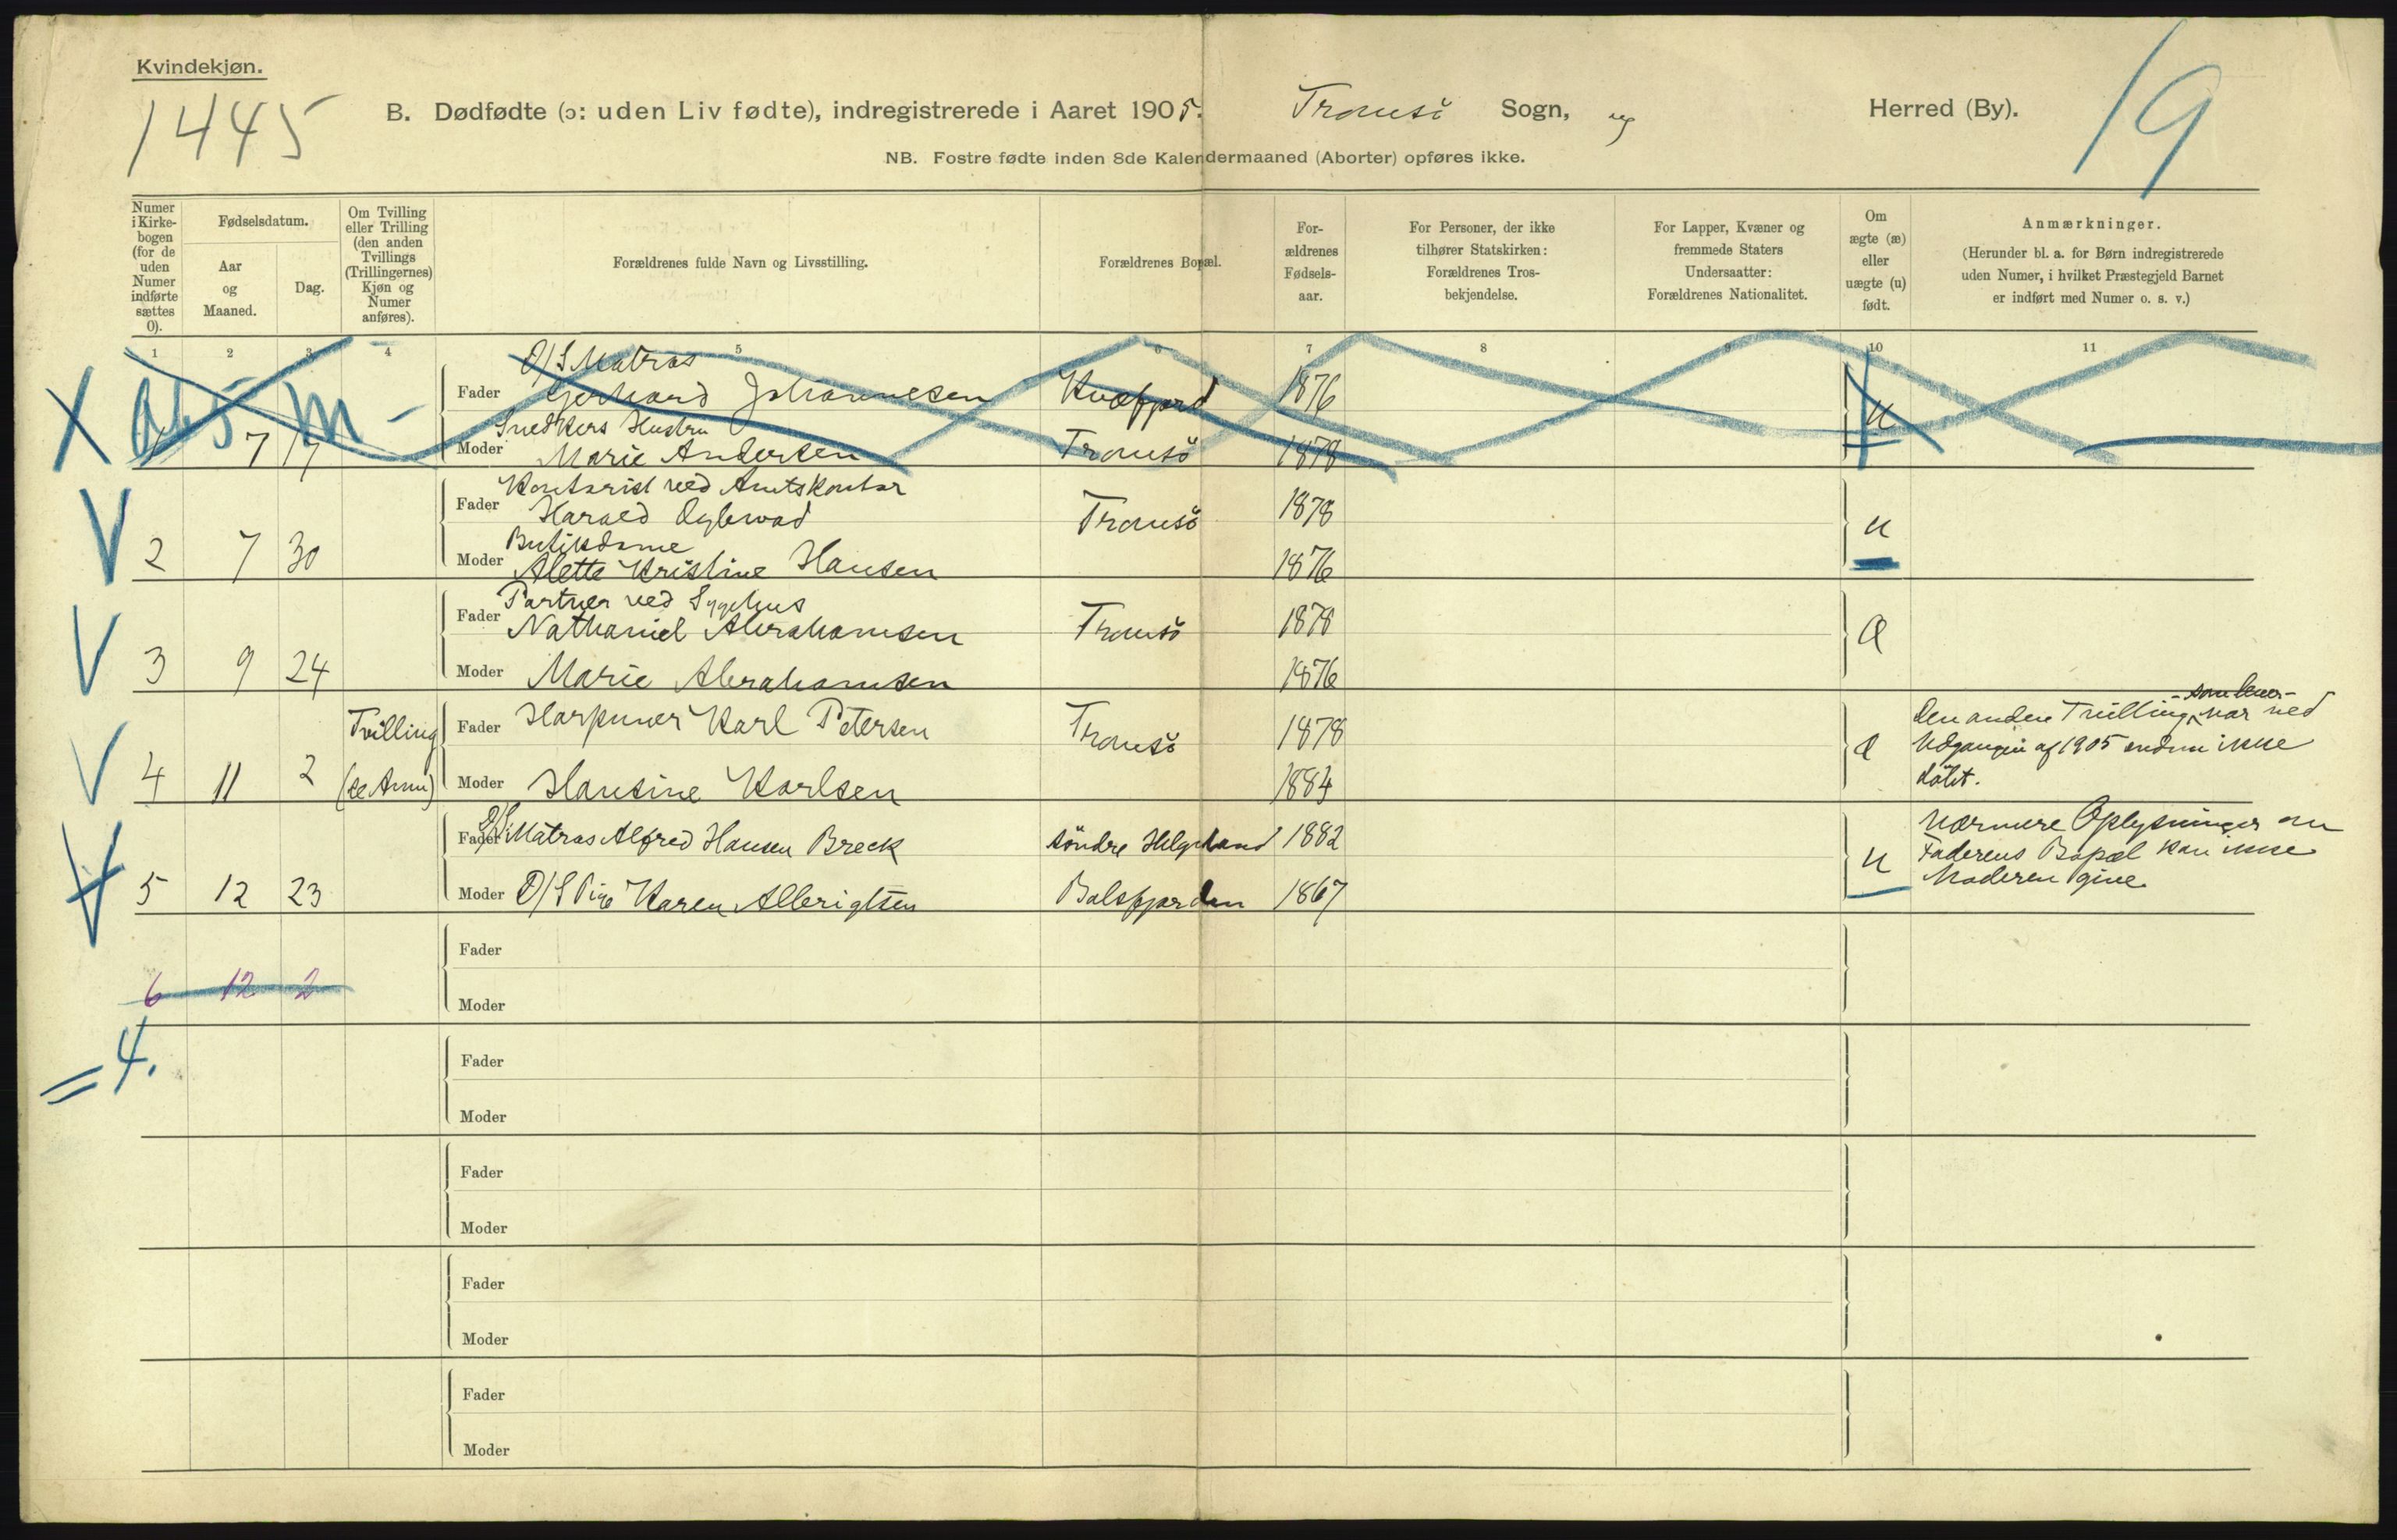 Kvindekjøn.
1445
B. Dødfødte (ɔ: uden Liv fødte), indregistrerede i Aaret 1905. Tromsö Sogn, og Herred (By).
19
NB. Fostre fødte inden 8de Kalendermaaned (Aborter) opføres ikke.
Numer
i Kirke-
bogen
(for de
uden
Numer
indførte
sættes
0).
Fødselsdatum.
Aar
og
Maaned.
Dag.
Om Tvilling
eller Trilling
(den anden
Tvillings
(Trillingernes)
Kjøn og
Numer
anføres).
Forældrenes fulde Navn og Livsstilling.
Forældrenes Bopæl.
For-
ældrenes
Fødsels-
aar.
For Personer, der ikke
tilhører Statskirken:
Forældrenes Tros-
bekjendelse.
For Lapper, Kvæner og
fremmede Staters
Undersaatter:
Forældrenes Nationalitet.
Om
ægte (æ)
eller
uægte (u)
født.
Anmærkninger.
(Herunder bl. a. for Børn indregistrerede
uden Numer, i hvilket Præstegjeld Barnet
er indført med Numer o. s. v.)
1 2 3 4 5 6 7 8 9 10 11
D/S Matros
Fader Gerhard Johannesen Kvæfjord 1876
u
Snedkers Hustru
7 17 Moder Marie Andersen Tromsö 1878
Kontorist ved Amtskontor
Fader Harald Tromsö 1878
u
Butikdame
2 7 30 Moder Alette Kristine Hansen 1876
Portner ved Sygehus
Fader Nathaniel Abrahamsen Tromsö 1878
Æ
3 9 24 Moder Marie Abrahamsen 1876
Tvilling Fader Harpuner Karl Petersen Tromsö 1878
Æ
4 11 2 (se Anm) Moder Hansine Karlsen 1884
- som lever -
Den anden Tvilling var ved
Udgangen af 1905 endnu ikke
döbt.
Fader D/S Matros Alfred Hansen Breck Söndre Helgeland 1882
u
5 12 23 Moder D/S Pige Karen Albrigtsen Balsfjorden 1867
Nærmere Oplysninger om
Faderens Bopæl kan ikke
Moderen give.
Fader
6 12 2
Moder
= 4.
Fader
Moder
Fader
Moder
Fader
Moder
Fader
Moder